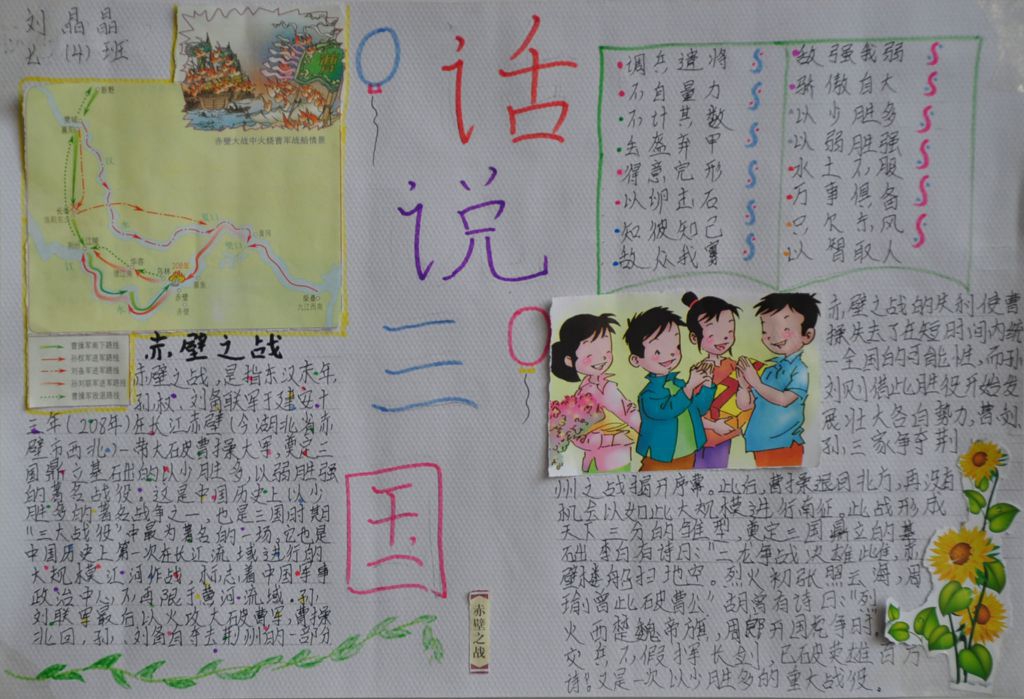 刘晶晶
七(4)班
赤壁大战中火烧曹军战船情景
新野
樊城
襄阳
汉
水
长坂
当阳东北
夏口
江陵
华容
乌林
208年
赤壁
江
柴桑
九江西南
曹操军南下路线
孙权军进军路线
刘备军进军路线
孙刘联军进军路线
曹操军败退路线
话
说
三
国
调兵遣将
不自量力
不计其数
丢盔弃甲
得意忘形
以卵击石
知彼知己
敌众我寡
敌强我弱
骄傲自大
以少胜多
以弱胜强
水土不服
万事俱备
只欠东风
以智取人
赤壁之战
赤壁之战,是指东汉末年,
孙权、刘备联军于建安十
三年(208年)在长江赤壁(今湖北省赤
壁市西北)一带大破曹操大军,奠定三
国鼎立基础的以少胜多,以弱胜强
的著名战役。这是中国历史上以少
胜多的著名战争之一,也是三国时期
“三大战役”中最为著名的一场。它也是
中国历史上第一次在长江流域进行的
大规模江河作战,标志着中国军事
政治中心不再限于黄河流域。孙
刘联军最后以火攻大破曹军,曹操
北回,孙、刘各自夺去荆州的一部分
赤壁之战
赤壁之战的失利使曹
操失去了在短时间内统
一全国的可能性,而孙
刘则借此胜役开始发
展壮大各自势力,曹刘
孙三家争夺荆
州之战揭开序幕。此后,曹操退回北方,再没有
机会以如此大规模进行南征,此战形成
天下三分的雏型,奠定三国鼎立的基
础,李白有诗曰:“二龙争战决雌雄,赤
壁楼船扫地空。烈火初张照云海,周
瑜曾此破曹公”胡曾有诗曰:“烈
火西楚魏帝旗,周郎开国虎争时。
交兵不假挥长剑,已破英雄百万
师”又是一次以少胜多的重大战役。